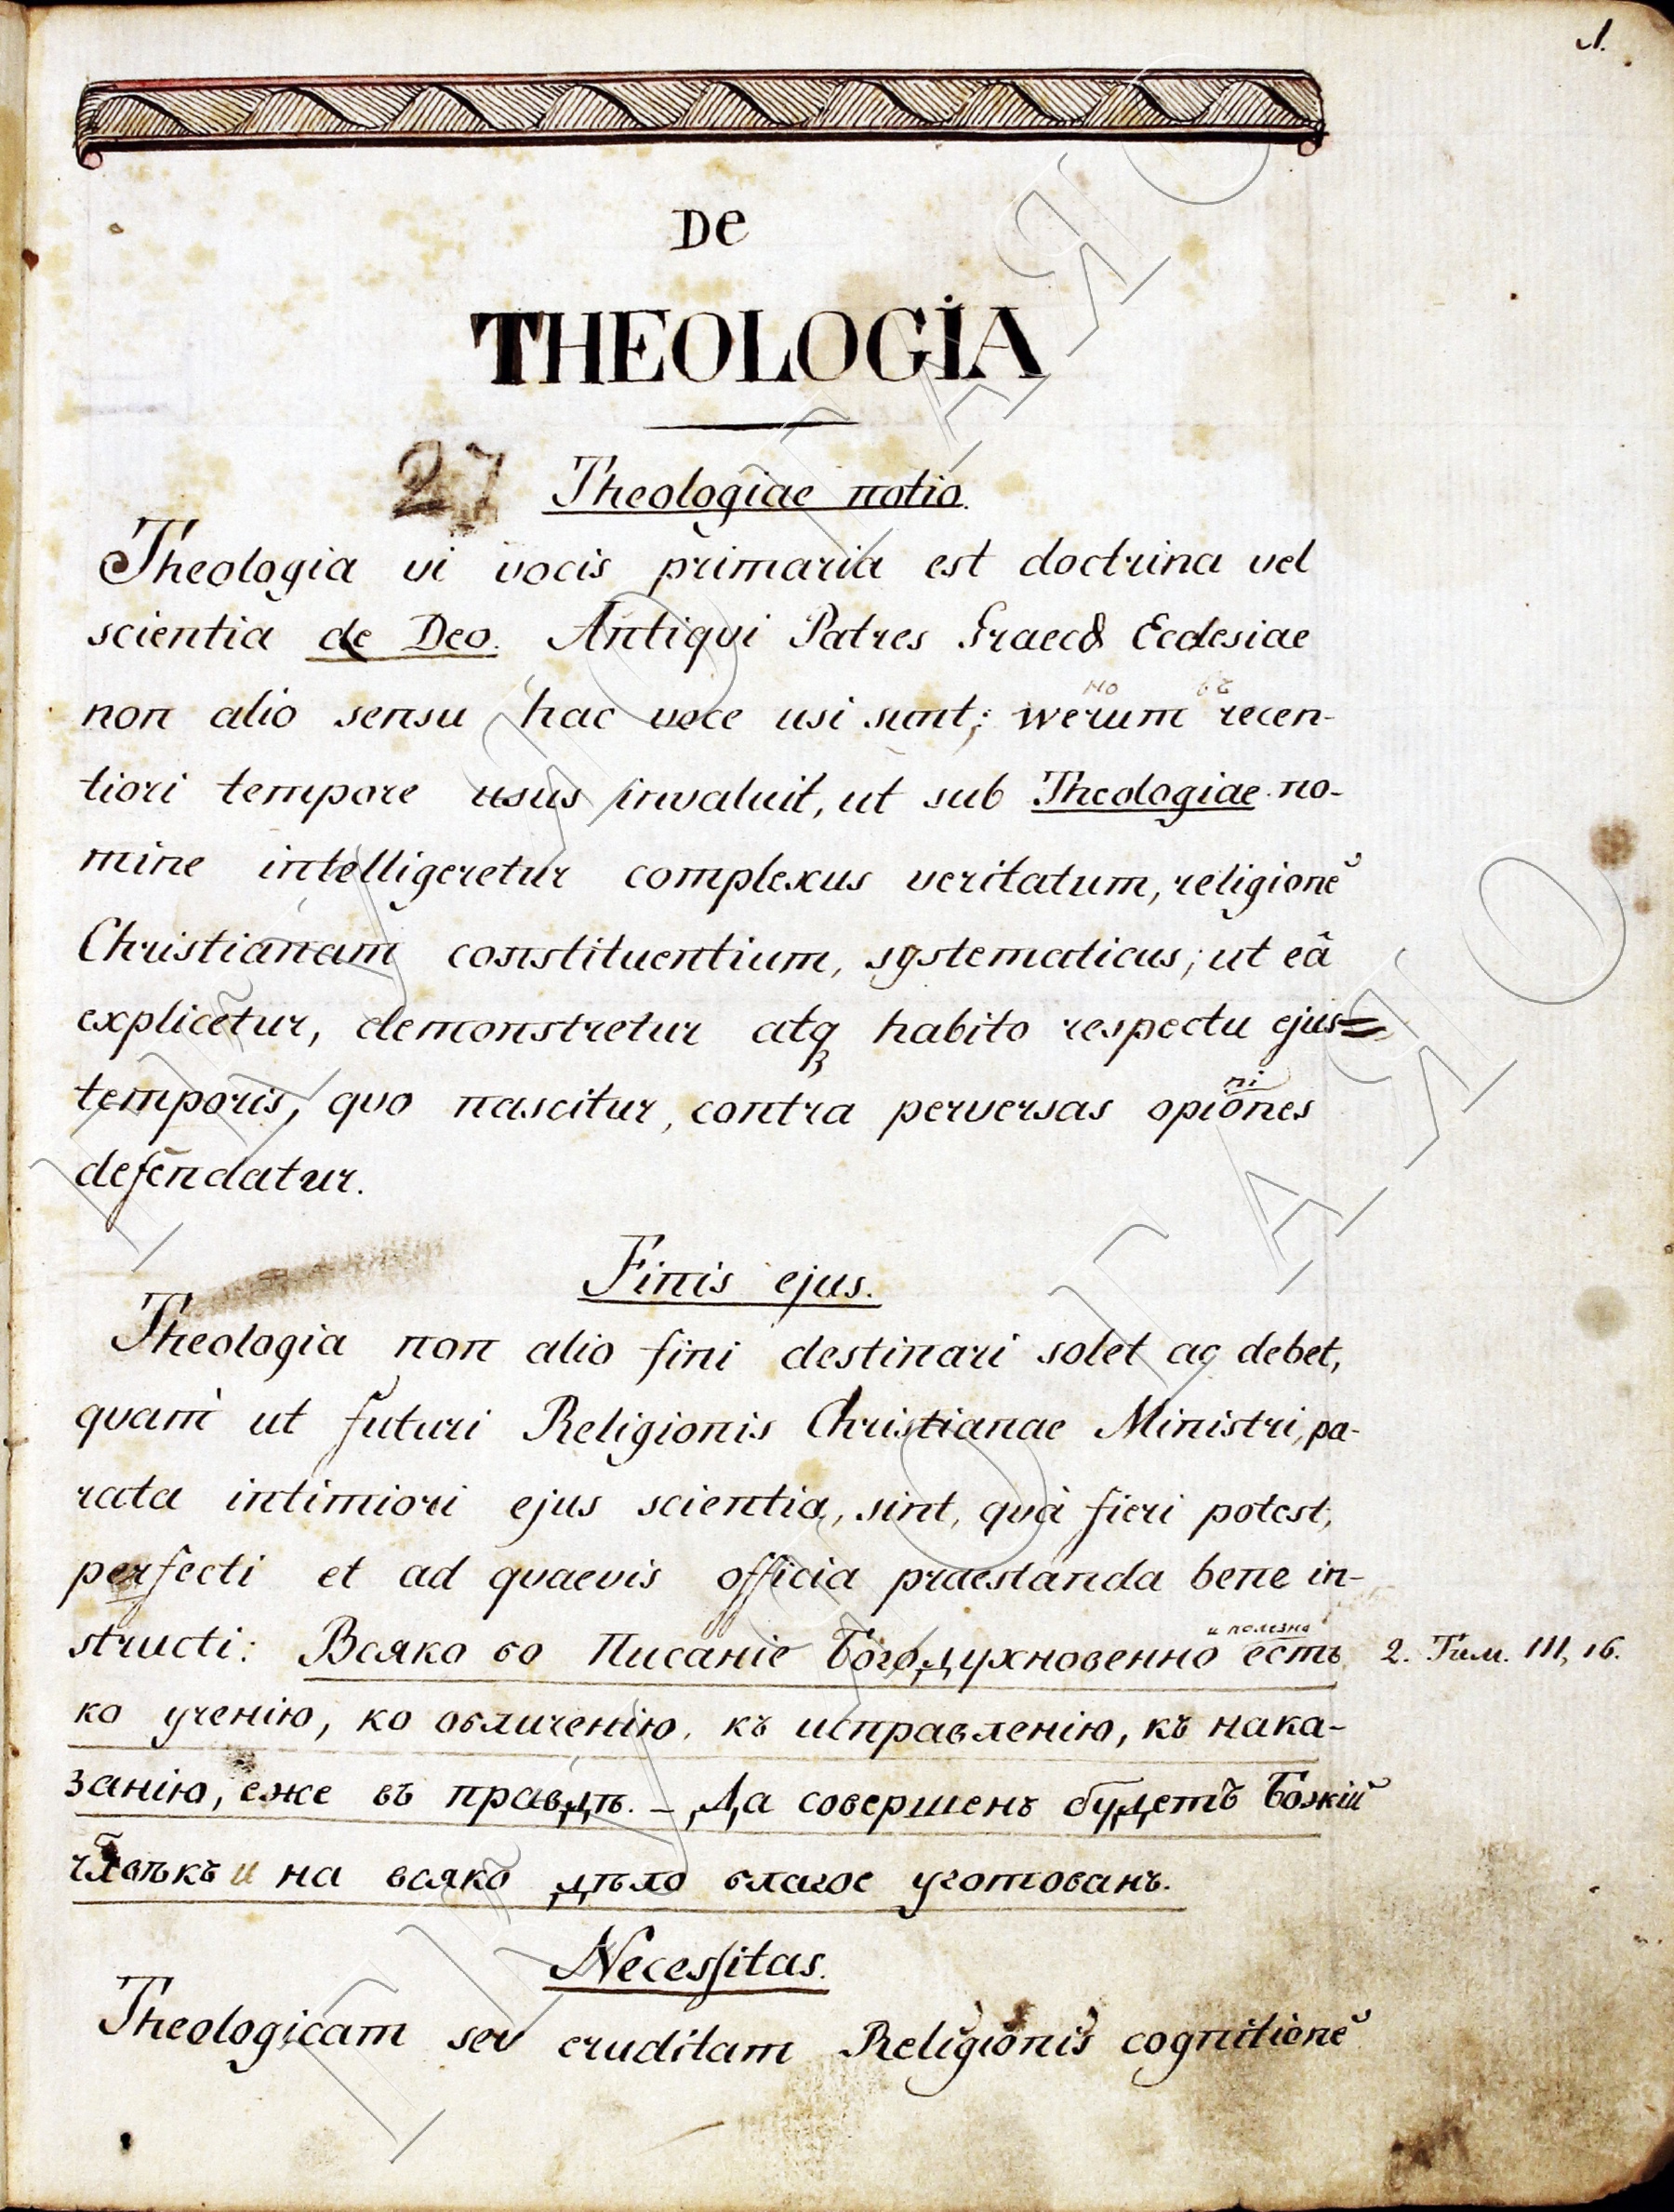 1.
De
THEOLOGIA
27
Theologiae notio.
Theologia vi vocis primaria est doctrina vel
scientia de Deo. Antiqui Patres Graecæ Ecclesiae
но въ
non alio sensu hac voce usi sunt; werum recen-
tiori tempore usus invaluit, ut sub Theologiae no-
mine intelligeretur complexus veritatum, religionē
Christianam constituentium, systematicus; ut eâ
explicetur, demonstretur atq habito respectu ejus=
ni
temporis, quo nascitur, contra perversas opiones
defendatur.
Finis ejus.
Theologia non alio fini destinari solet ac debet,
quam ut futuri Religionis Christianae Ministri, pa-
rata intimiori ejus scientia, sint, quà fieri potest,
perfecti et ad quaevis officia praestanda bene in-
и полезно
structi: Всяко бо Писаніе Богодухновенно есть 2. Тим. III, 16.
ко ученію, ко обличенію, къ исправленію, къ нака-
занію, еже въ правдѣ. – Да совершенъ будетъ Божій
члвѣкъ и на всяко дѣло благое уготованъ.
Necessitas.
Theologicam seu eruditam Religionis cognitionē